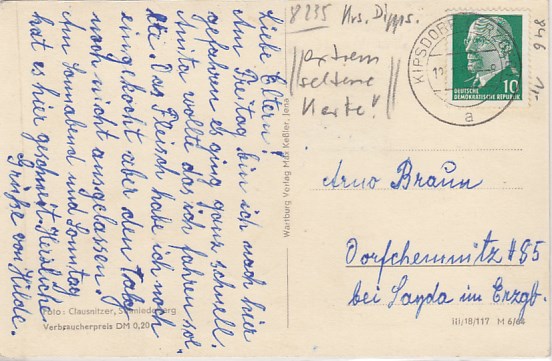 Liebe Eltern!
Am Freitag bin ich nach hier
gefahren es ging ganz schnell.
Anita wollte das ich fahren sol-
lte. Das Fleisch habe ich noch
eingekocht aber den Talg
noch nicht ausgelassen.
Am Sonnabend und Sonntag
hat es hier geschneit. Herzliche
Grüße von Hilde.
Foto: Clausnitzer, Schmiedeberg
Verbraucherpreis DM 0,20
Wartburg Verlag Max Keßler, Jena
8235 Krs. Dipps.
extrem
seltene
Karte!
KIPSDORF
a
10
DEUTSCHE
DEMOKRATISCHE REPUBLIK
846
Arno Braun
Dorfchemnitz #85
bei Sayda im Erzgb.
III/18/117 M 6/64